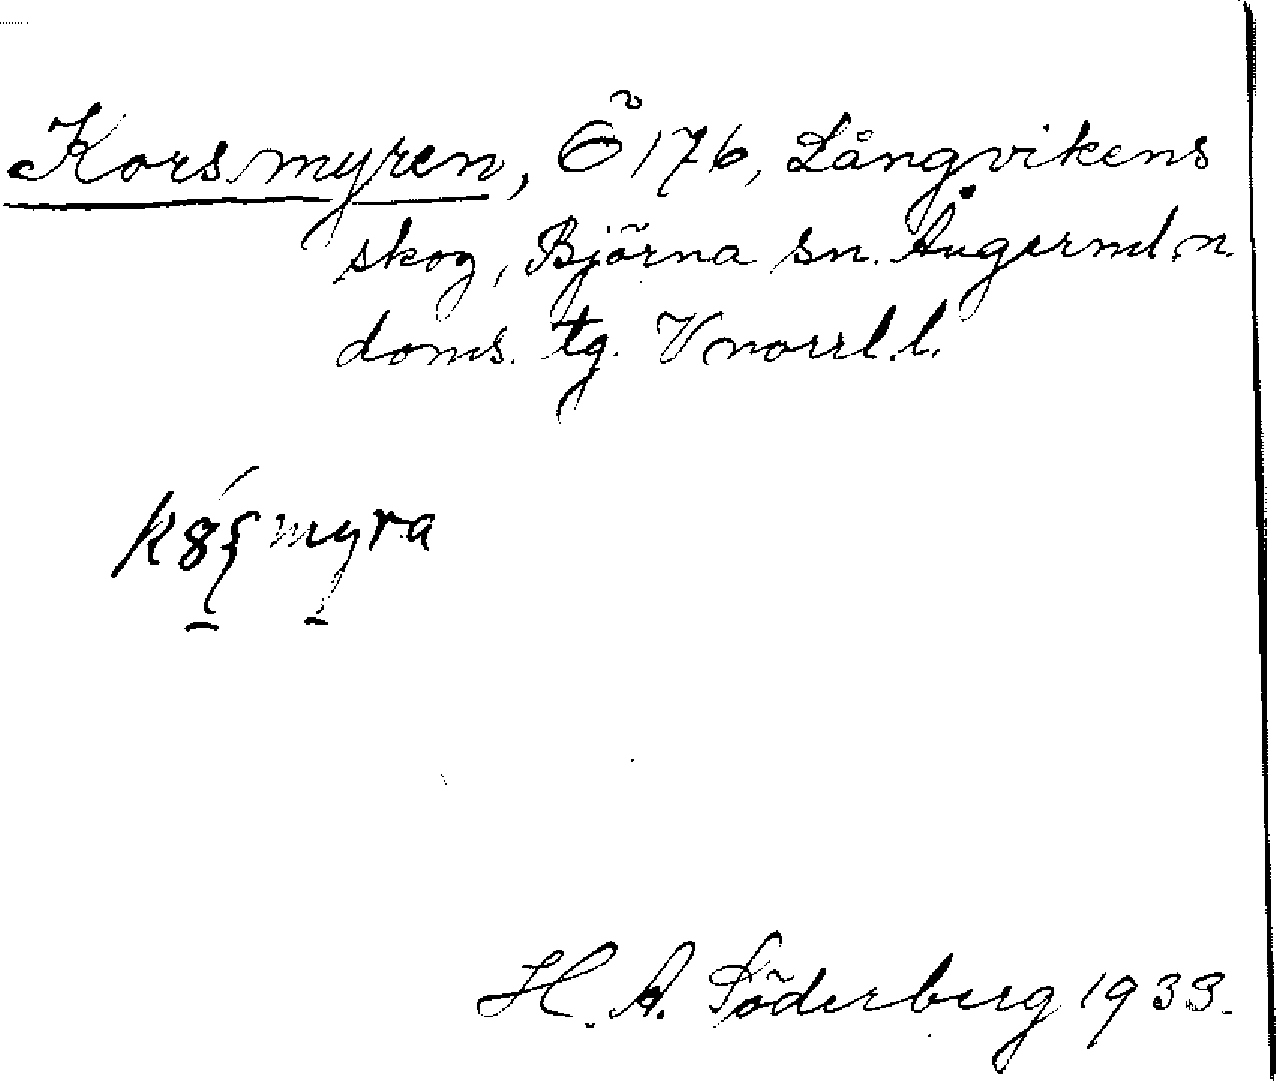 Korsmyren, Ö 176, Långvikens
skog, Björna sn. Ångerml. n.
doms. tg. Vnorrl. l.
myra
H. A. Söderberg 1933.